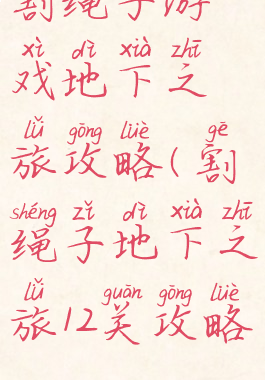 割绳子游
xì dì xià zhī
戏地下之
lǚ gōng lüè gē
旅攻略(割
shéng zǐ dì xià zhī
绳子地下之
lǚ guān gōng lüè
旅12关攻略